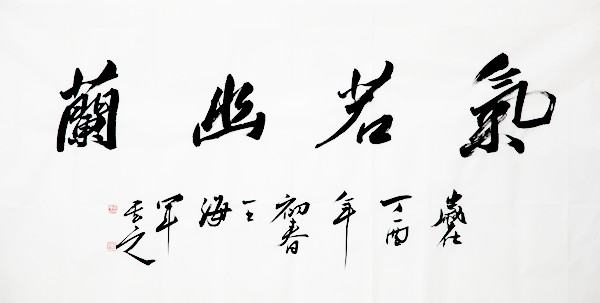 氣若幽蘭
歲在丁酉年初春王海軍書之